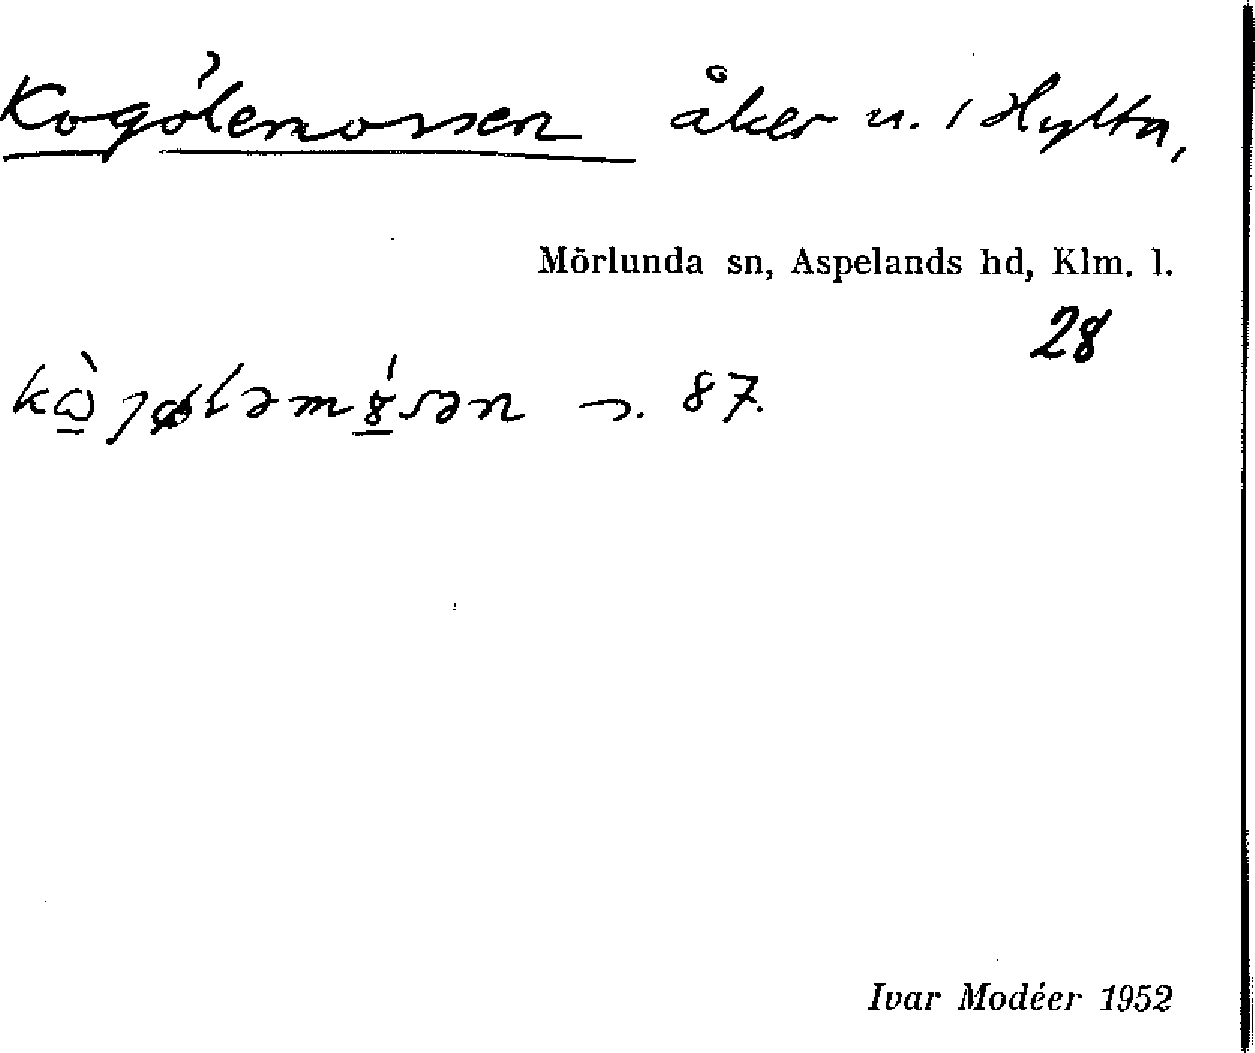 Kogölemossen åker u. / Hylta,
Mörlunda sn, Aspelands hd, Klm. l.
28
87.
Ivar Modéer 1952